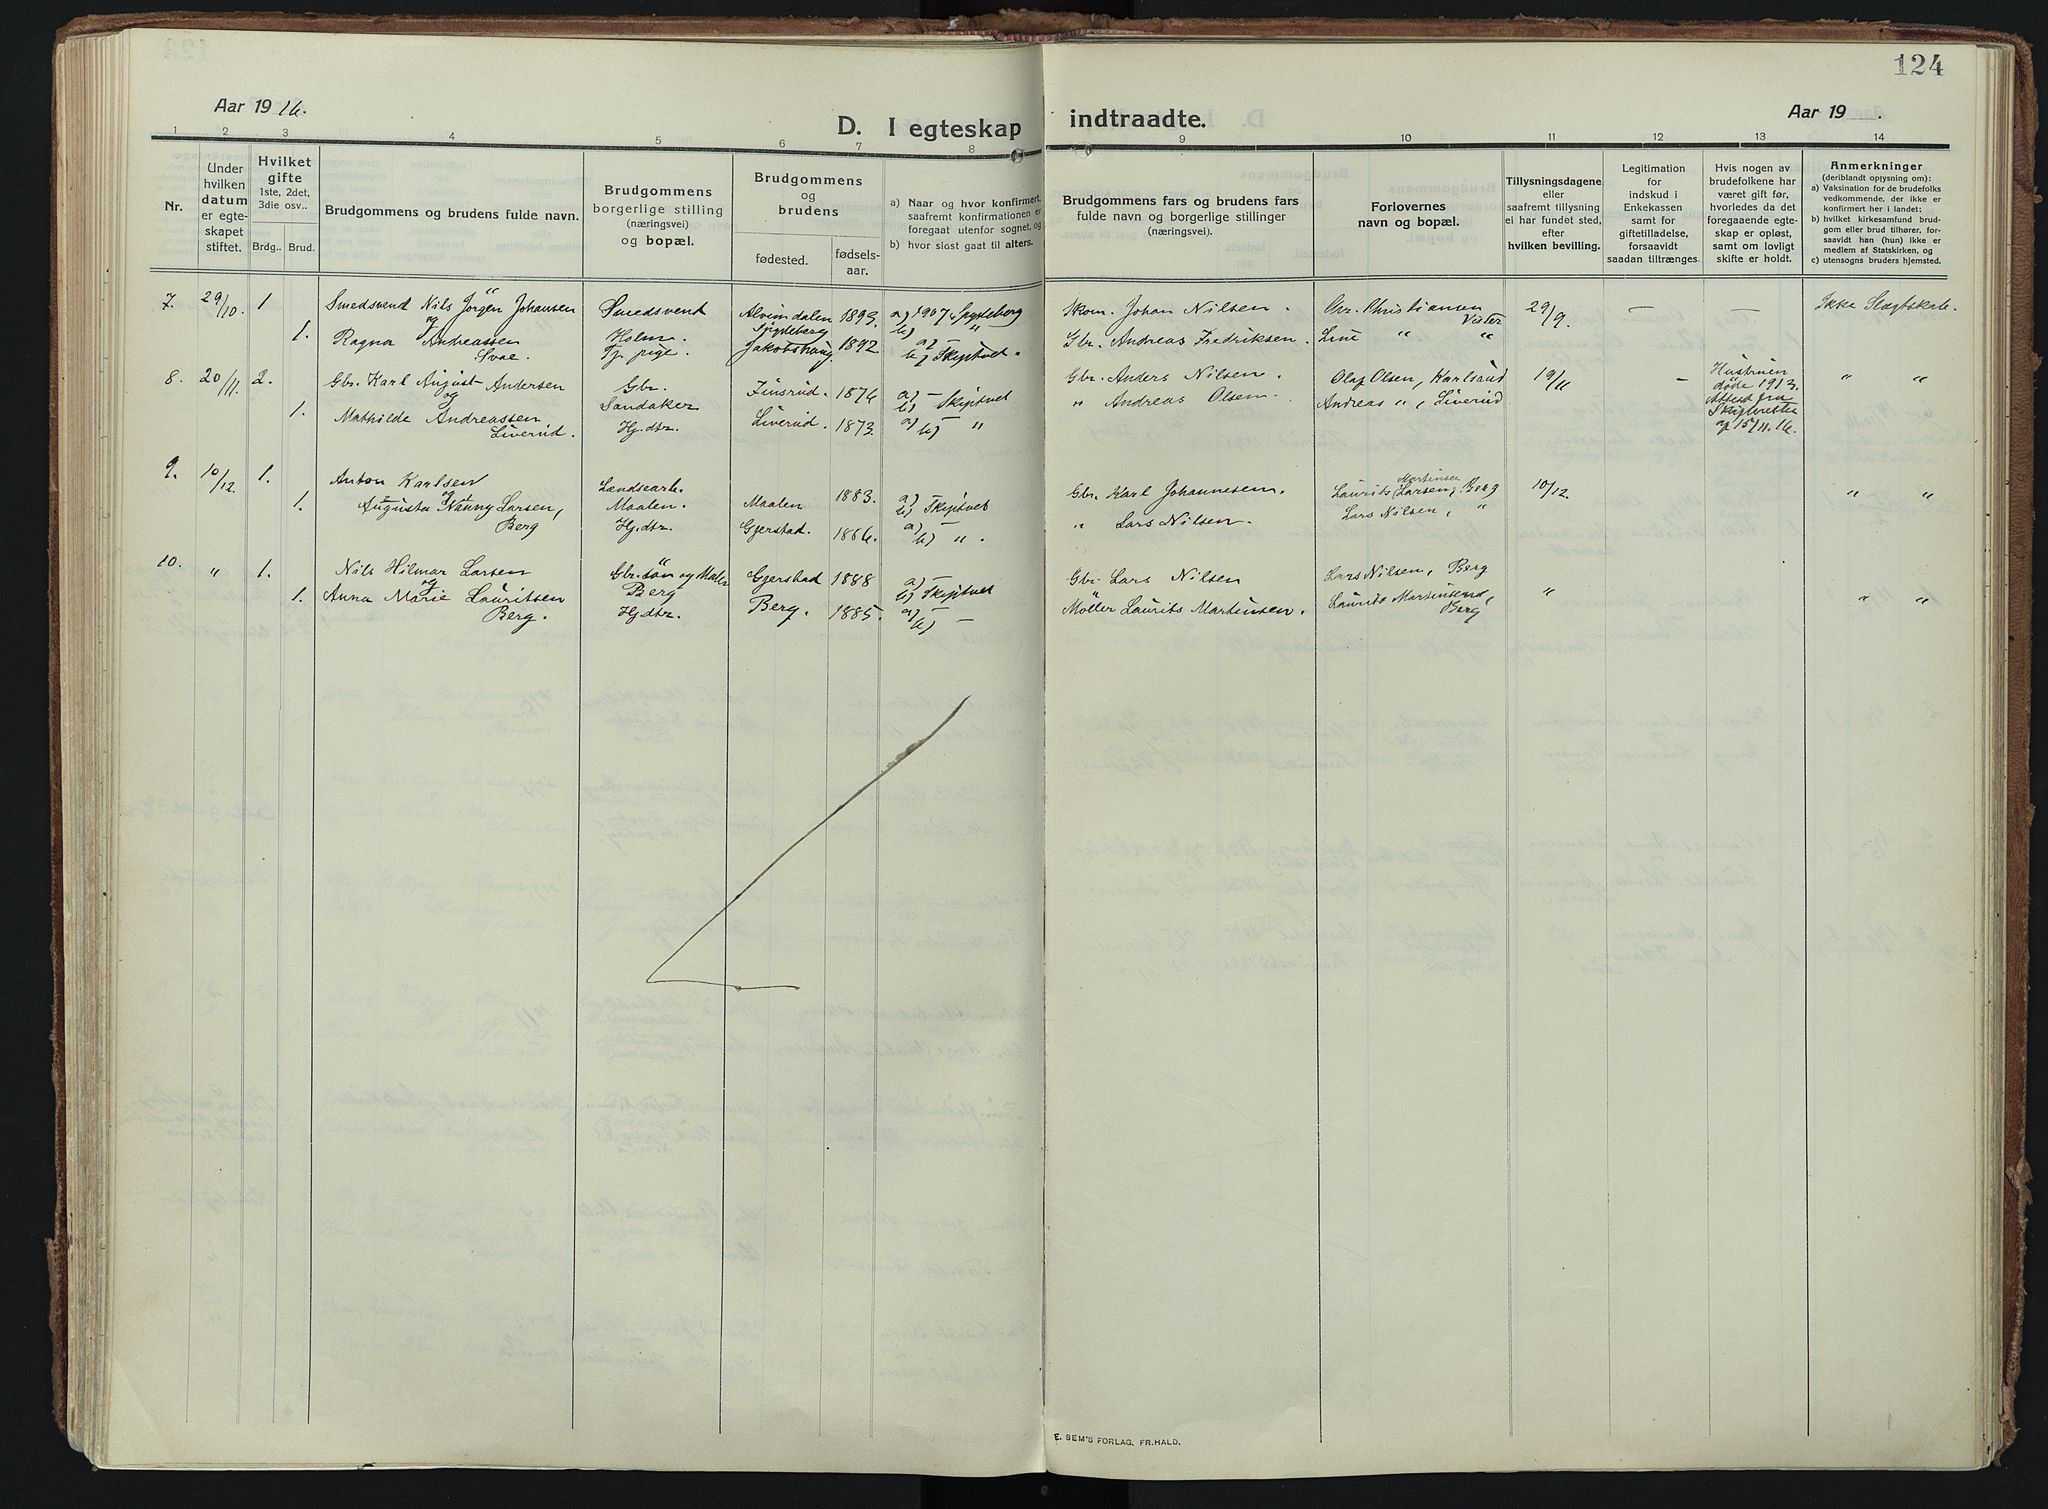 124
Aar 1916.
D. I egteskap indtraadte.
Aar 19 .
1 2 3 4 5 6 7 8 9 10 11 12 13 14
Nr.
Under hvilken datum er egte-skapet stiftet.
Hvilket gifte
1ste, 2det, 3die osv..
Brdg. Brud.
Brudgommens og brudens fulde navn.
Brudgommens
borgerlige stilling
(næringsvei)
og bopæl.
Brudgommens
og
brudens
fødested.
fødsels-
aar.
a) Naar og hvor konfirmert,
saafremt konfirmationen er
foregaat utenfor sognet, og
b) hvor sidst gaat til alters.
Brudgommens fars og brudens fars
fulde navn og borgerlige stillinger
(næringsvei).
Forlovernes
navn og bopæl.
Tillysningsdagene
eller
saafremt tillysning
ei har fundet sted,
efter
hvilken bevilling.
Legitimation
for
indskud i
Enkekassen
samt for
giftetilladelse,
forsaavidt
saadan tiltrænges.
Hvis nogen av
brudefolkene har
været gift før,
hvorledes da det
foregaaende egte-
skap er opløst,
samt om lovligt
skifte er holdt.
Anmerkninger
(deriblandt opjysning om):
a) Vaksination for de brudefolks
vedkommende, der ikke er
konfirmert her i landet;
b) hvilket kirkesamfund brud-
gom eller brud tilhører, for-
saavidt han (hun) ikke er
medlem af Statskirken, og
c) utensogns bruders hjemsted.
7. 29/10. 1 Smedsvend Nils Jörgen Johansen Smedsvend 1893. a) 1907 i Spydeberg Skom. Johan Nilsen. Chr. Christiansen 29/9. — — Ikke Slegtskab.
og Holm. Spydeberg b) " Vister
1. Ragna Andreassen Tj. pige. Jakobshaug. 1892. a) — Gbr. Andreas Fredriksen. Line " "
Svae. b) Skiptvet.
8. 20/11. 2. Gbr. Karl August Andersen Gbr. Finsrud. 1876 a) — Gbr. Anders Nilsen. Olaf Olsen, Karlsrud 19/11 — Hustruen " "
og Sandaker b) Skiptvet døde 1913.
1. Mathilde Andreassen Hj.dtr. Liverud. 1873. a) " Andreas Olsen. Andreas ", Liverud Attest fra
Liverud. b) " Skifteretten
af 15/11.16.
9. 10/12. 1. Anton Karlsen Landsearb. Maalen 1883. a) — Gbr. Karl Johannesen. Laurits Martinsen Larsen, Berg 10/12. " "
og Maalen. b) Skiptvet
1. Augusta Nanny Larsen, Hj.dtr. Gjerstad. 1886. a) — " Lars Nilsen. Lars Nilsen, "
Berg b) ".
10. " 1. Nils Hilmar Larsen Gbr. sön og Maler Gjerstad 1888 a) — Gbr. Lars Nilsen Lars Nilsen, Berg " " "
og Berg b) Skiptvet
1. Anna Marie Lauritsen Hj.dtr. Berg. 1885. a) — Möller Laurits Martinsen. Laurits Martinsen,
Berg. b) — Berg
E. SEM'S FORLAG, FR.HALD.